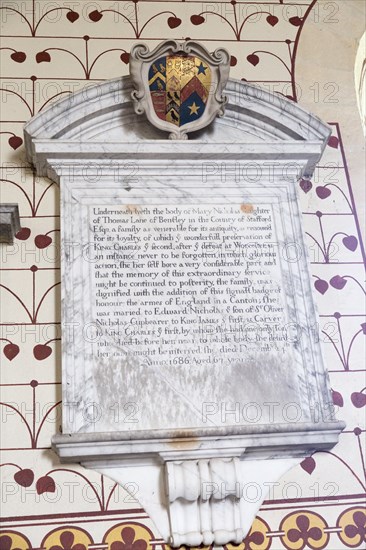 Underneath lyeth the body of Mary Nicholas daughter
of Thomas Lane of Bentley in the County of Stafford
Esqr. a family as venerable for its antiquity, as renowned
for its loyalty, of which ye wonderfull preservation of
King Charles ye second, after ye defeat at Worcester is
an instance never to be forgotten, in which glorious
action, she her self bore a very considerable part and
that the memory of this extraordinary service
might be continued to posterity, the family, was
dignified with the addition of this signall badge of
honour the armes of England in a Canton; she
was maried to Edward Nicholas ye son of Sr Oliver
Nicholas Cupbearer to King Iames ye first, & Carver
to King Charles ye first, by whom she had one only son
who died before her near to whose body she desired
her own might be interred she died December
Anno 1686 Aged 67 years